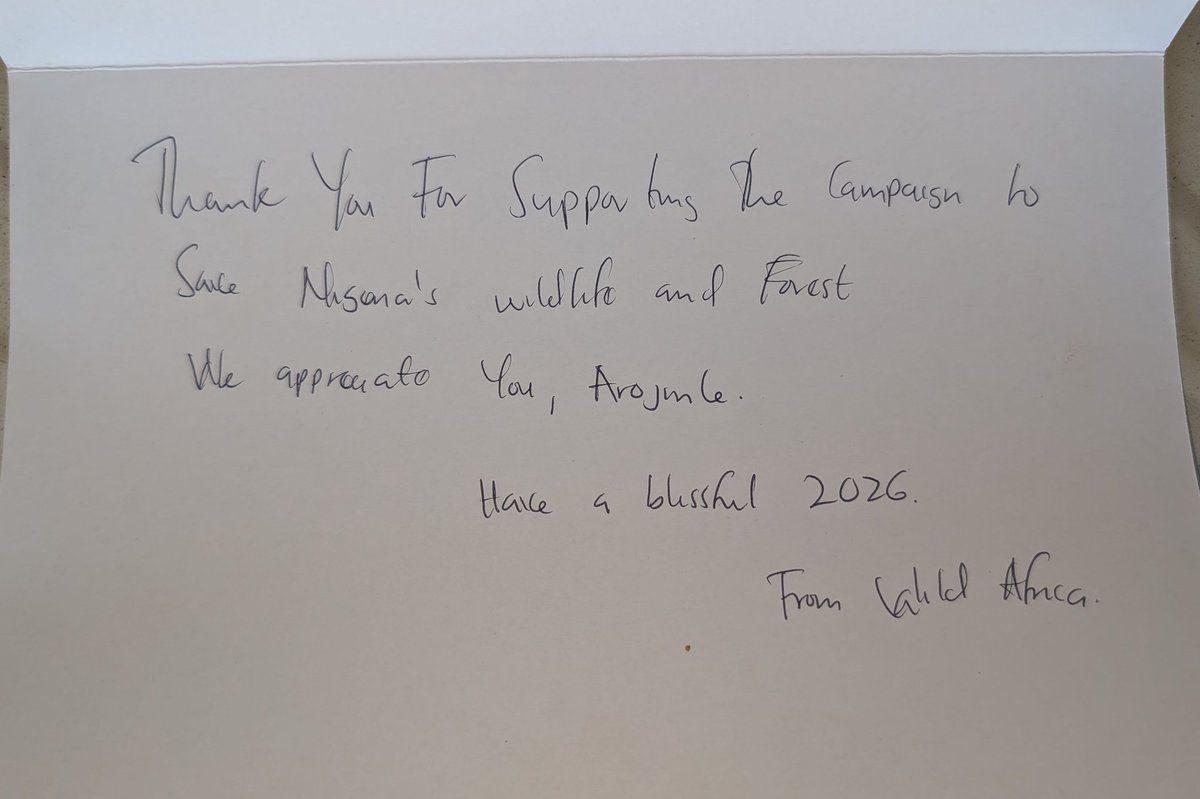 Thank You For Supporting The Campaign to
Save Nigeria's wildlife and Forest
We appreciate You, Arojinle.
Have a blissful 2026.
From Wild Africa.